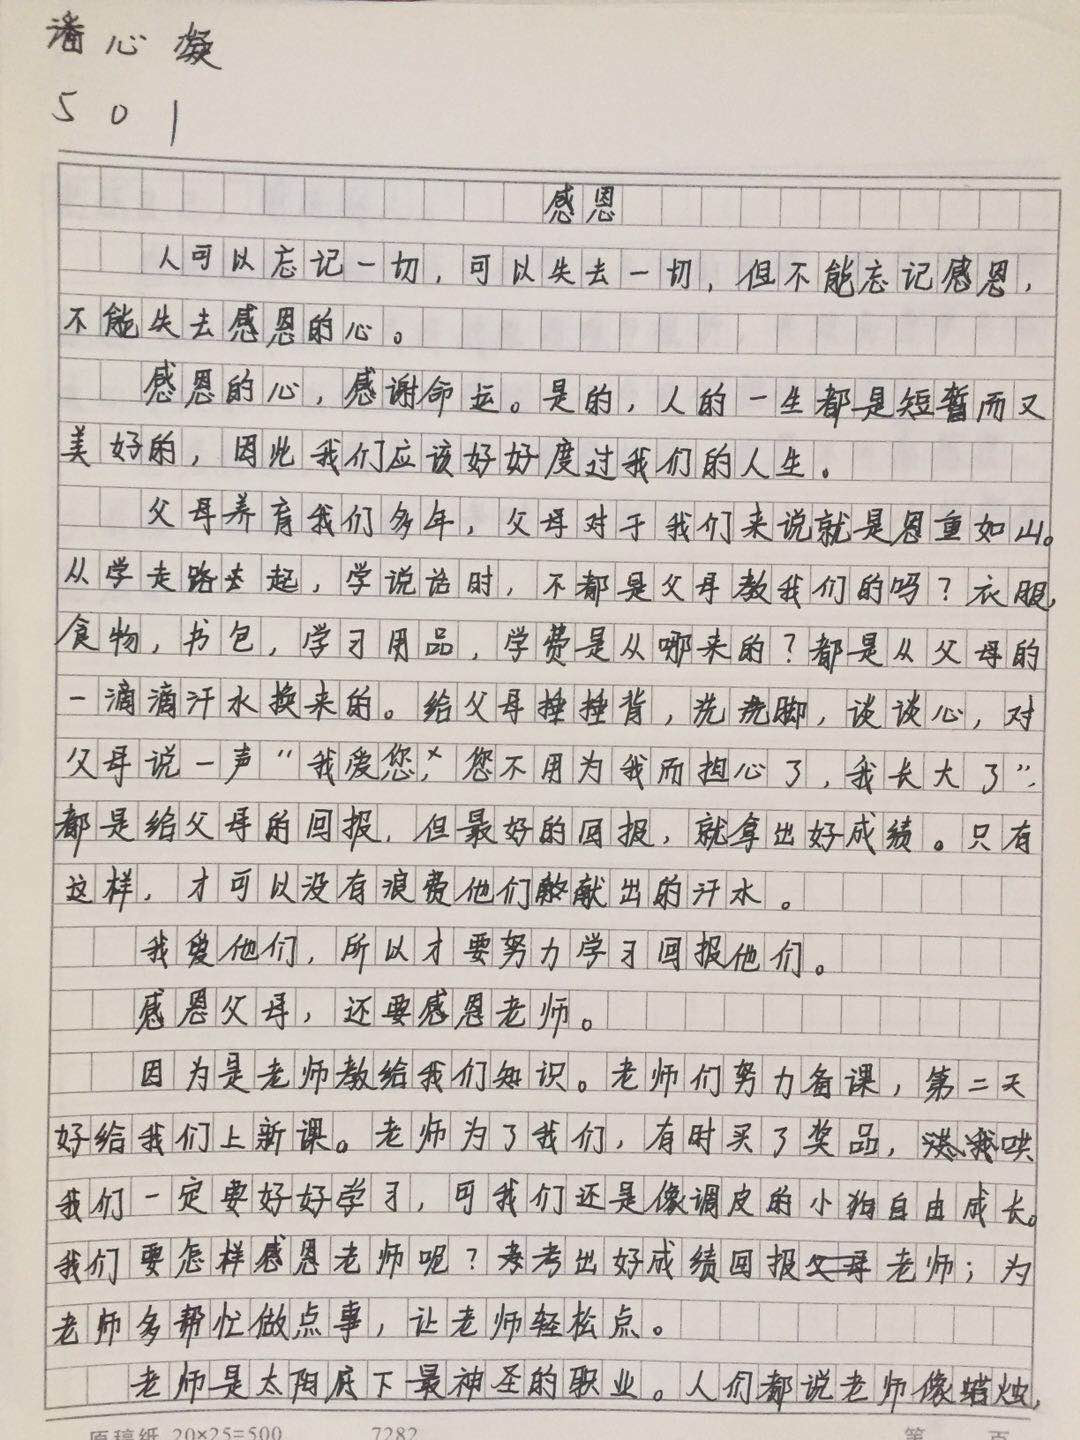 潘心凝
501
感恩
人可以忘记一切，可以失去一切，但不能忘记感恩，
不能失去感恩的心。
感恩的心，感谢命运。是的，人的一生都是短暂而又
美好的，因此我们应该好好度过我们的人生。
父母养育我们多年，父母对于我们来说就是恩重如山。
从学走路去起，学说话时，不都是父母教我们的吗？衣服，
食物，书包，学习用品，学费是从哪来的？都是从父母的
一滴滴汗水换来的。给父母捶捶背，洗洗脚，谈谈心，对
父母说一声“我爱您，”您不用为我而担心了，我长大了”.
都是给父母的回报，但最好的回报，就拿出好成绩。只有
这样，才可以没有浪费他们献出的汗水。
我爱他们，所以才要努力学习回报他们。
感恩父母，还要感恩老师。
因为是老师教给我们知识。老师们努力备课，第二天
好给我们上新课。老师为了我们，有时买了奖品，哄
我们一定要好好学习，可我们还是像调皮的小狗自由成长。
我们要怎样感恩老师呢？考出好成绩回报父母老师；为
老师多帮忙做点事，让老师轻松点。
老师是太阳底下最神圣的职业。人们都说老师像蜡烛，
原稿纸 20×25=500 7282 第 页